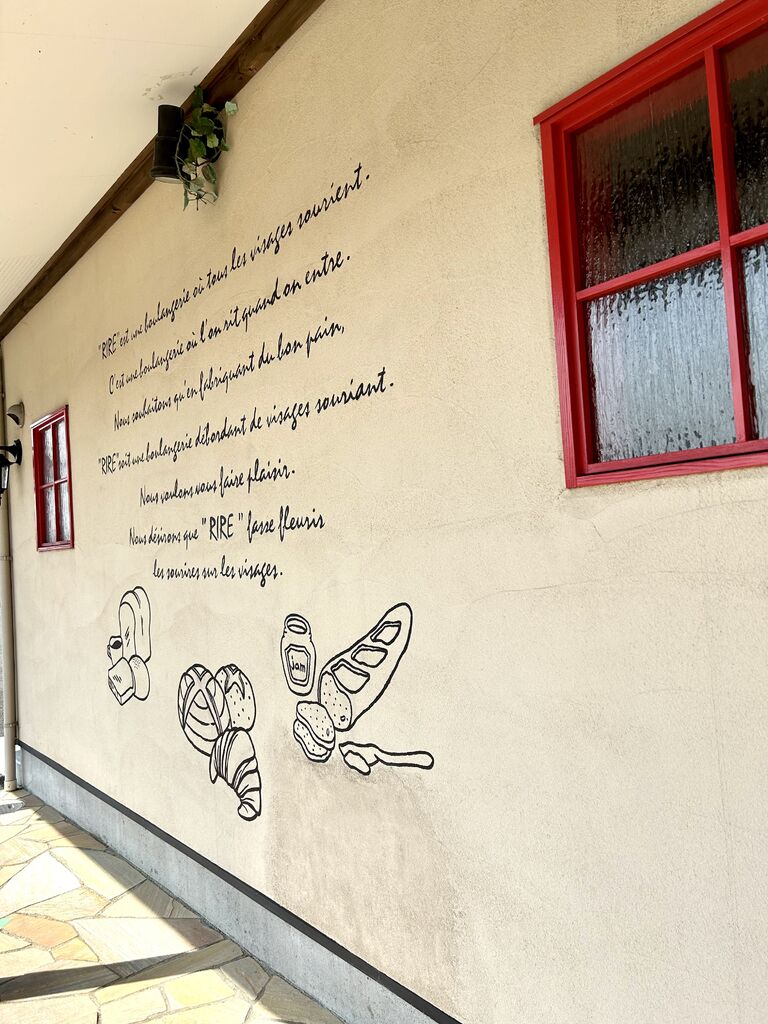 "RIRE" est une boulangerie où tous les visages sourient.
C'est une boulangerie où l'on rit quand on entre.
Nous souhaitons qu'en fabriquant du bon pain,
"RIRE" soit une boulangerie débordant de visages souriant.
Nous voulons vous faire plaisir.
Nous désirons que "RIRE" fasse fleurir
les sourires sur les visages.
jam